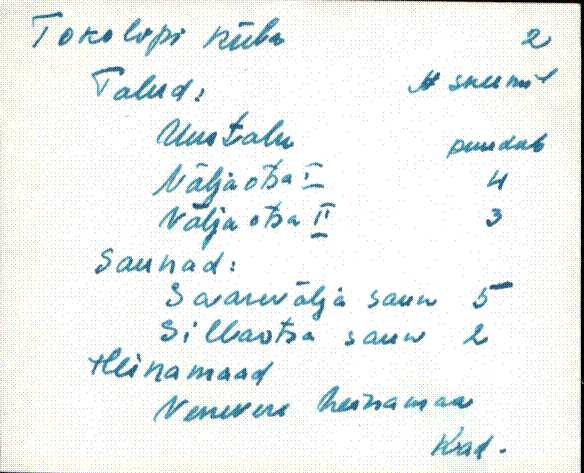 Tokolopi küla 2
Talud: № skeemil
Uustalu puudub
Väljaotsa I 4
Väljaotsa II 3
Saunad:
Saarevälja saun 5
Sillaotsa saun 2
Heinamaad
Venevere heinamaa
Kad.